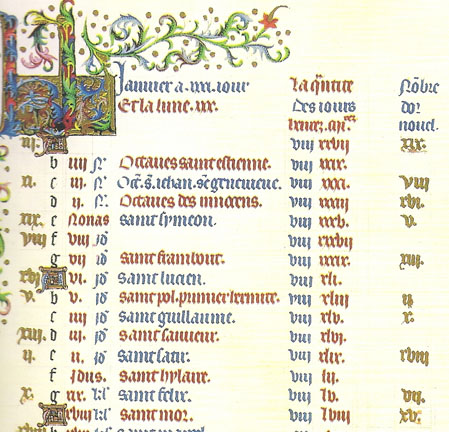 Januier a .xxxi. iour La q̃ntite Nõbre
Et la lune .xxx. Des iours dor
nouel.
iij. A viij xxvij xix.
b iiij N̄. Octaues saint estienne. viij xxix.
xi. c iij. N̄. Oct̄. s̄. iehan. s̄te geneuieue. viij xxxi. viij
d ij. N̄. Octaues des innocens. viij xxxiij xvi.
xix. e Nonas saint symeon. viij xxxv. v.
viij f viij id̄ viij xxxvij
g vij id̄ saint frambout. viij xxxix. xiij.
xvi A vi. id̄ saint lucien. viij xli.
v. b v. id̄ saint pol. premier hermite. viij xliij ij
c iiij id̄ saint guillaume. viij xlv. x.
xiij. d iij. id̄ saint sauueur. viij xlvi.
ij. e ij. id̄ saint satir. viij xlix. xviij
f Idus. saint hylaire. viij lij.
x. g xix. kl̄ saint felix. viij lv. vij.
A xviij kl̄ saint mor. viij lviij xv.